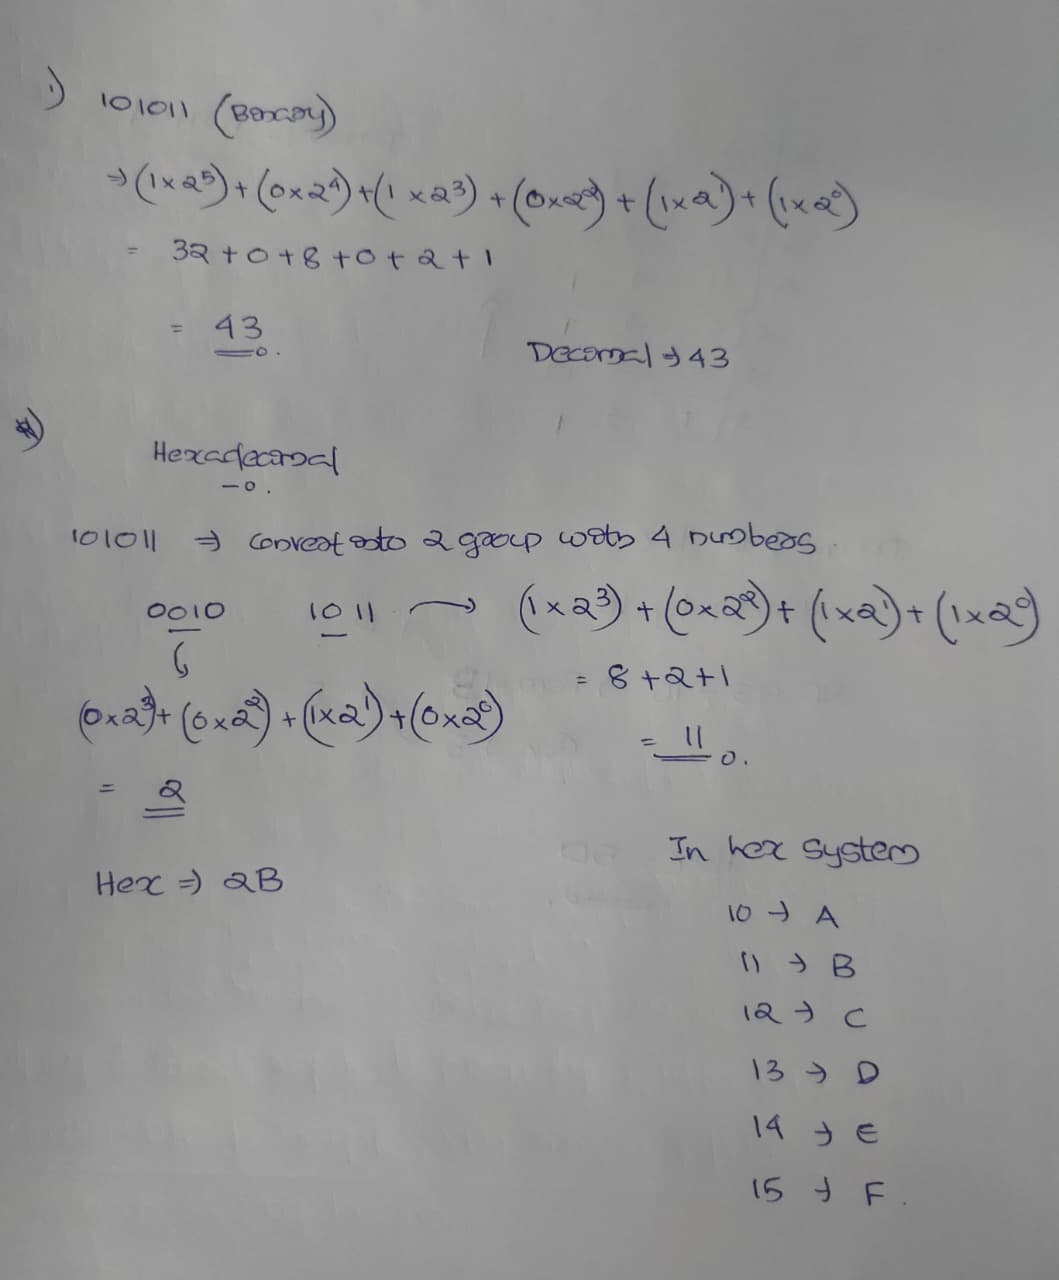 1) 101011 (Binary)
⇒ (1×2⁵) + (0×2⁴) + (1×2³) + (0×2²) + (1×2¹) + (1×2⁰)
= 32 + 0 + 8 + 0 + 2 + 1
= 43
Decimal ⇒ 43
Hexadecimal
101011 ⇒ Convert into 2 group with 4 numbers.
0010 1011 → (1×2³) + (0×2²) + (1×2¹) + (1×2⁰)
= 8 + 2 + 1
(0×2³) + (0×2²) + (1×2¹) + (0×2⁰)
= 11
= 2
In hex system
Hex ⇒ 2B
10 → A
11 → B
12 → C
13 → D
14 → E
15 → F.